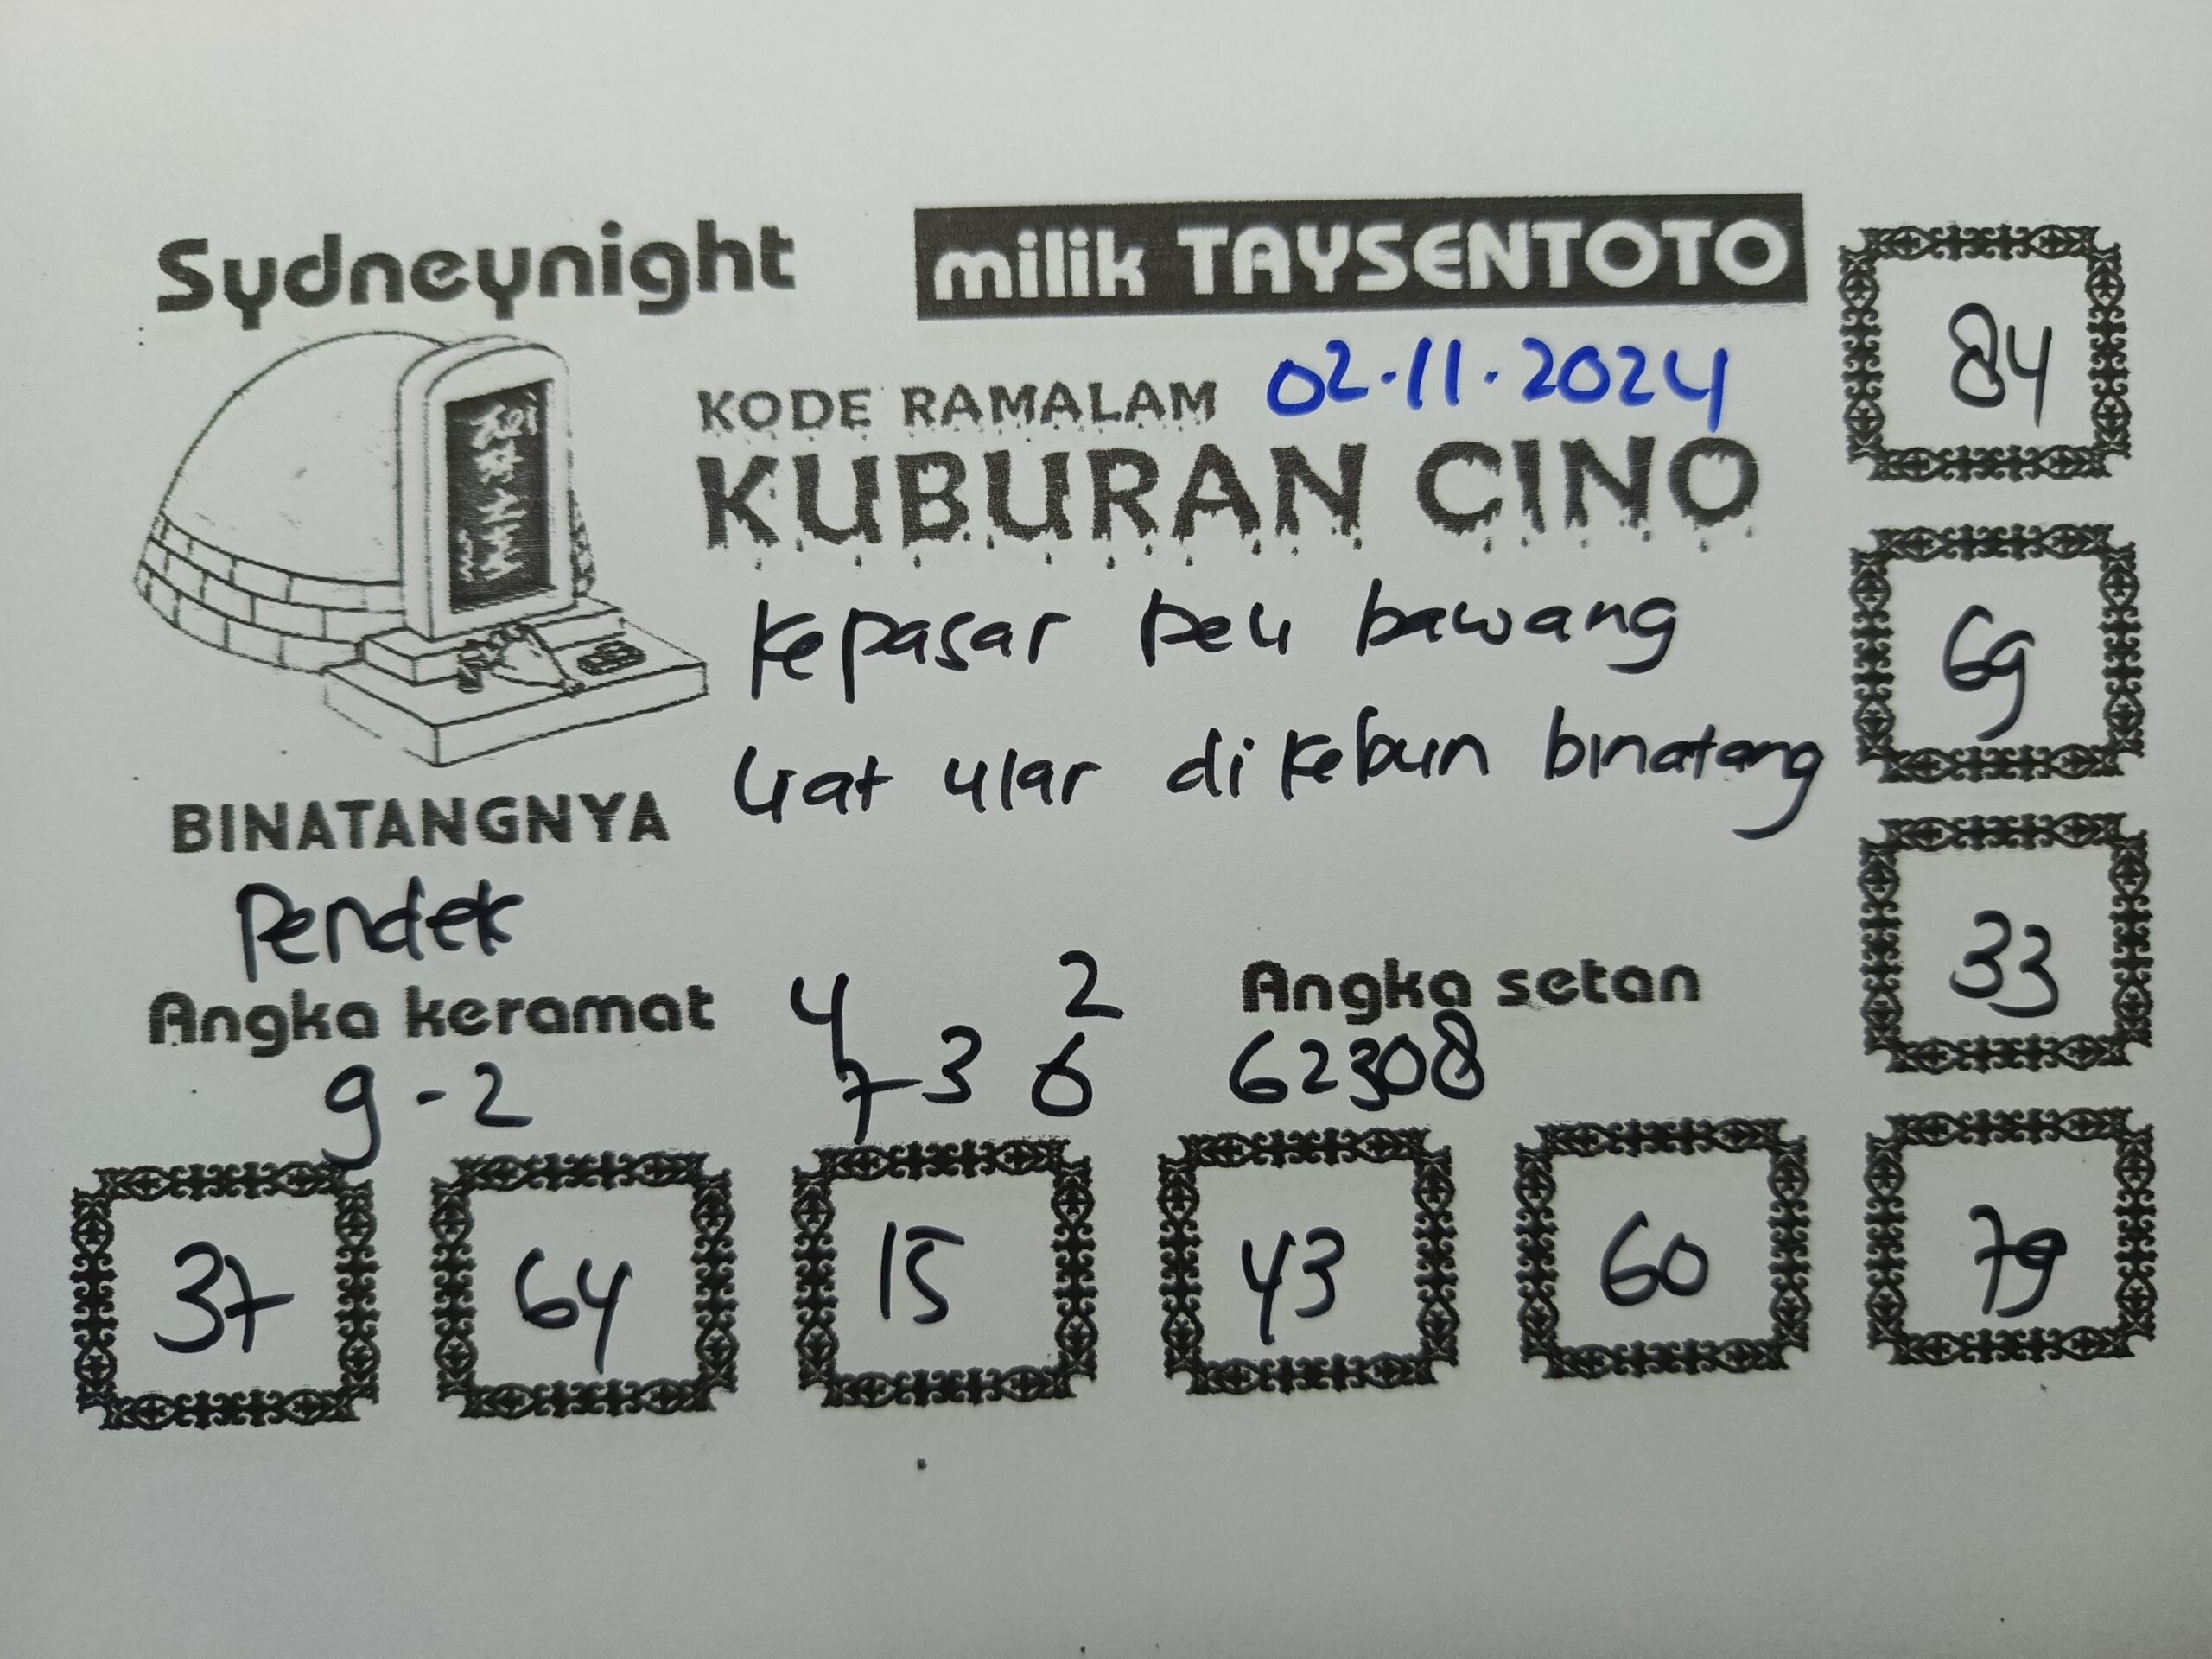 Sydneynight
milik TAYSENTOTO
KODE RAMALAM 02.11.2024
KUBURAN CINO
Kepasar beli bawang
liat ular di kebun binatang
BINATANGNYA
Pendek
Angka keramat
9-2
4 2
7 3 6
Angka setan
62308
84
69
33
37 64 15 43 60 79